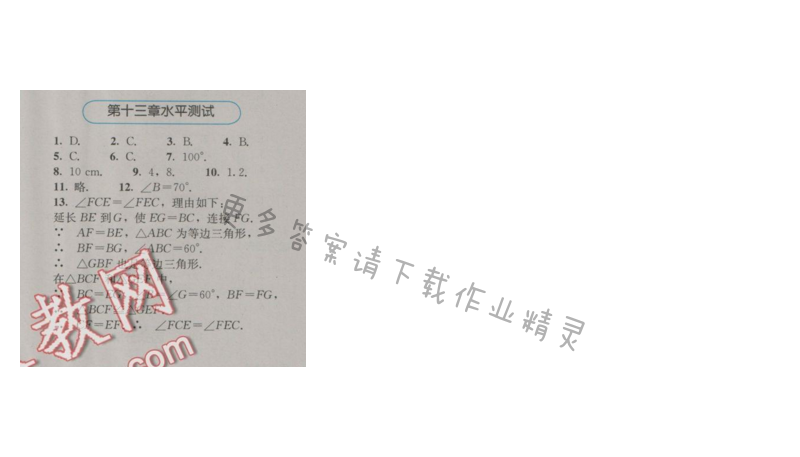 第十三章水平测试
1. D. 2. C. 3. B. 4. B.
5. C. 6. C. 7. 100°.
8. 10 cm. 9. 4，8. 10. 1.2.
11. 略. 12. ∠B=70°.
13. ∠FCE=∠FEC，理由如下：
延长 BE 到G，使 EG=BC，连接 FG.
∵ AF=BE，△ABC 为等边三角形，
∴ BF=BG，∠ABC=60°.
∴ △GBF 也 边三角形.
在△BCF 中，
BC= ∠G=60°，BF=FG，
BCF GEF
=EF ∴ ∠FCE=∠FEC.
教网
.com
更多答案请下载作业精灵